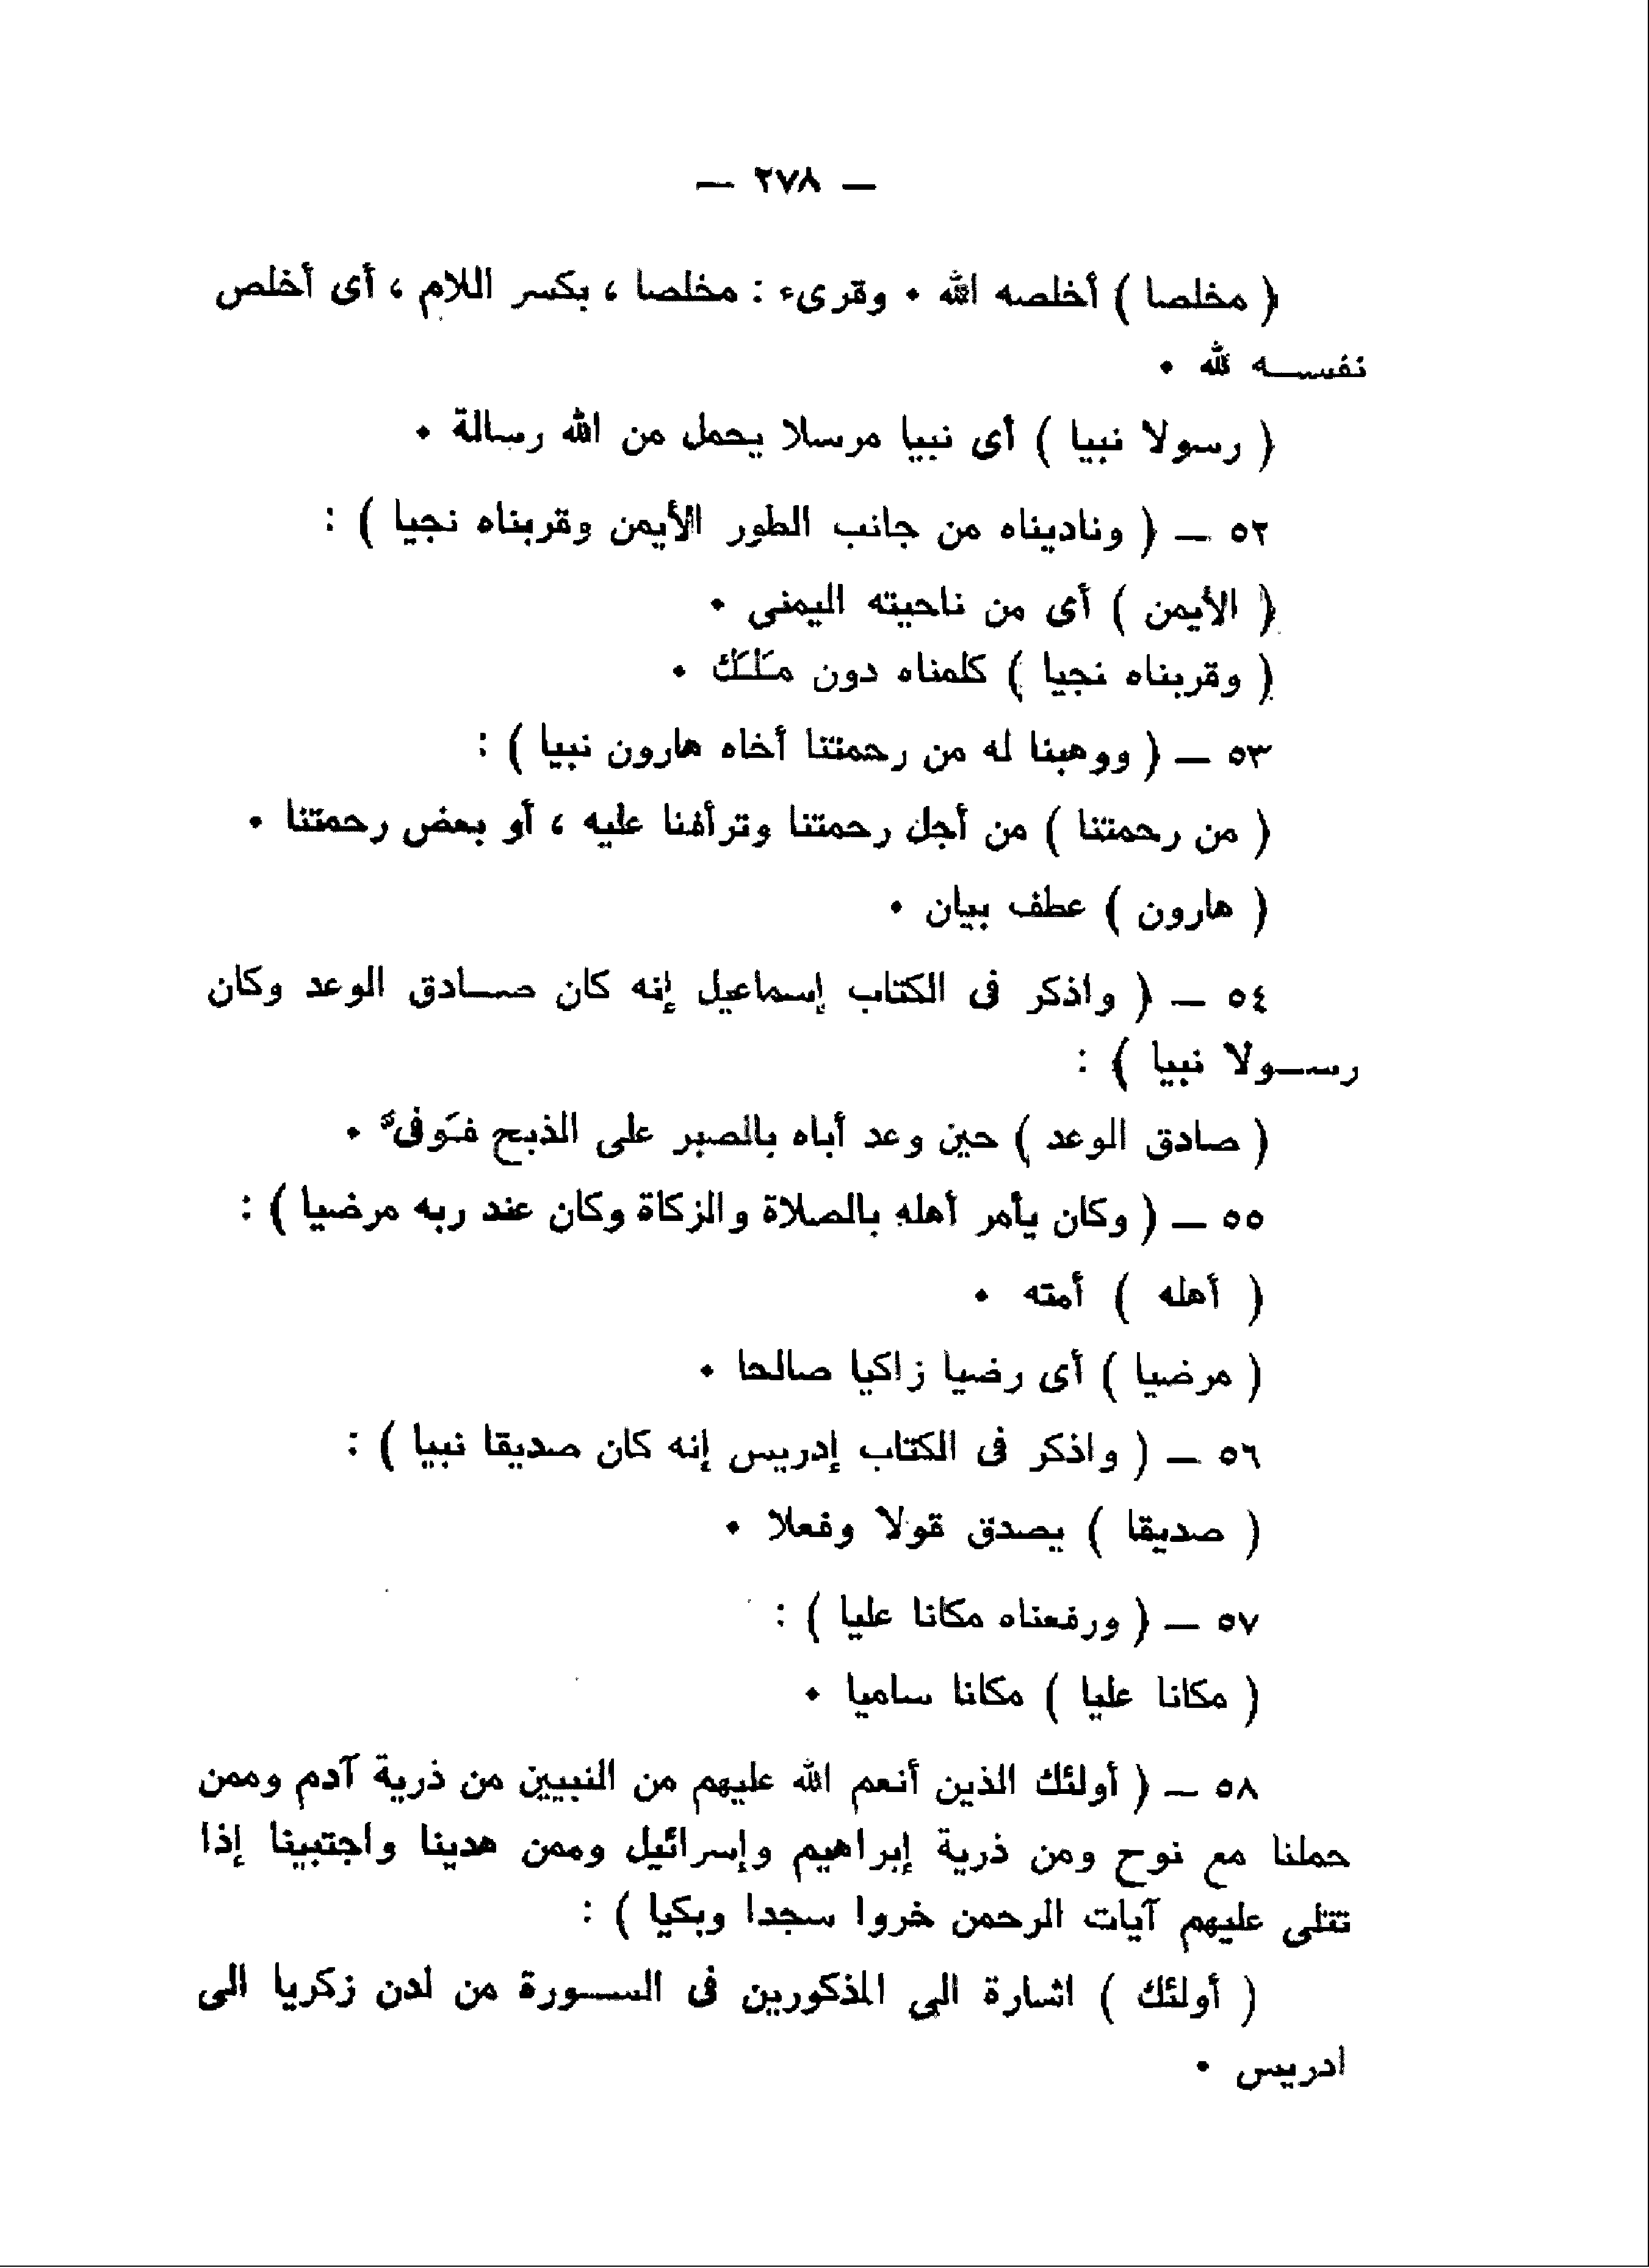 — ٢٧٨ —
( مخلصا ) أخلصه الله ٠ وقرىء : مخلصا ، بكسر اللام ، أى أخلص
نفسه لله ٠
( رسولا نبيا ) أى نبيا مرسلا يحمل من الله رسالة ٠
٥٢ — ( وناديناه من جانب الطور الأيمن وقربناه نجيا ) :
( الأيمن ) أى من ناحيته اليمنى ٠
( وقربناه نجيا ) كلمناه دون مَلَك ٠
٥٣ — ( ووهبنا له من رحمتنا أخاه هارون نبيا ) :
( من رحمتنا ) من أجل رحمتنا وترأفنا عليه ، أو بعض رحمتنا ٠
( هارون ) عطف بيان ٠
٥٤ — ( واذكر فى الكتاب إسماعيل إنه كان صادق الوعد وكان
رسولا نبيا ) :
( صادق الوعد ) حين وعد أباه بالصبر على الذبح فوَفىَّ ٠
٥٥ — ( وكان يأمر أهله بالصلاة والزكاة وكان عند ربه مرضيا ) :
( أهله ) أمته ٠
( مرضيا ) أى رضيا زاكيا صالحا ٠
٥٦ — ( واذكر فى الكتاب إدريس إنه كان صديقا نبيا ) :
( صديقا ) يصدق قولا وفعلا ٠
٥٧ — ( ورفعناه مكانا عليا ) :
( مكانا عليا ) مكانا ساميا ٠
٥٨ — ( أولئك الذين أنعم الله عليهم من النبيين من ذرية آدم وممن
حملنا مع نوح ومن ذرية إبراهيم وإسرائيل وممن هدينا واجتبينا إذا
تتلى عليهم آيات الرحمن خروا سجدا وبكيا ) :
( أولئك ) اشارة الى المذكورين فى السورة من لدن زكريا الى
ادريس ٠